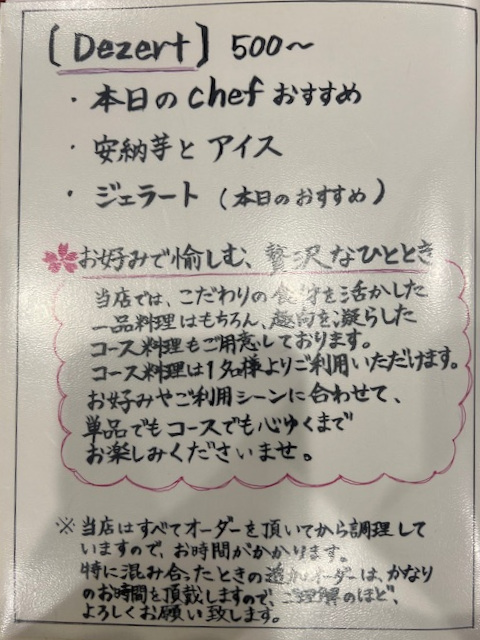 [Dezert] 500〜
・本日のchefおすすめ
・安納芋とアイス
・ジェラート（本日のおすすめ）
お好みで愉しむ、贅沢なひととき
当店では、こだわりの食材を活かした
一品料理はもちろん、趣向を凝らした
コース料理もご用意しております。
コース料理は1名様よりご利用いただけます。
お好みやご利用シーンに合わせて、
単品でもコースでも心ゆくまで
お楽しみくださいませ。
※当店はすべてオーダーを頂いてから調理して
いますので、お時間がかかります。
特に混み合ったときの追加オーダーは、かなり
のお時間を頂戴しますので、ご理解のほど、
よろしくお願い致します。